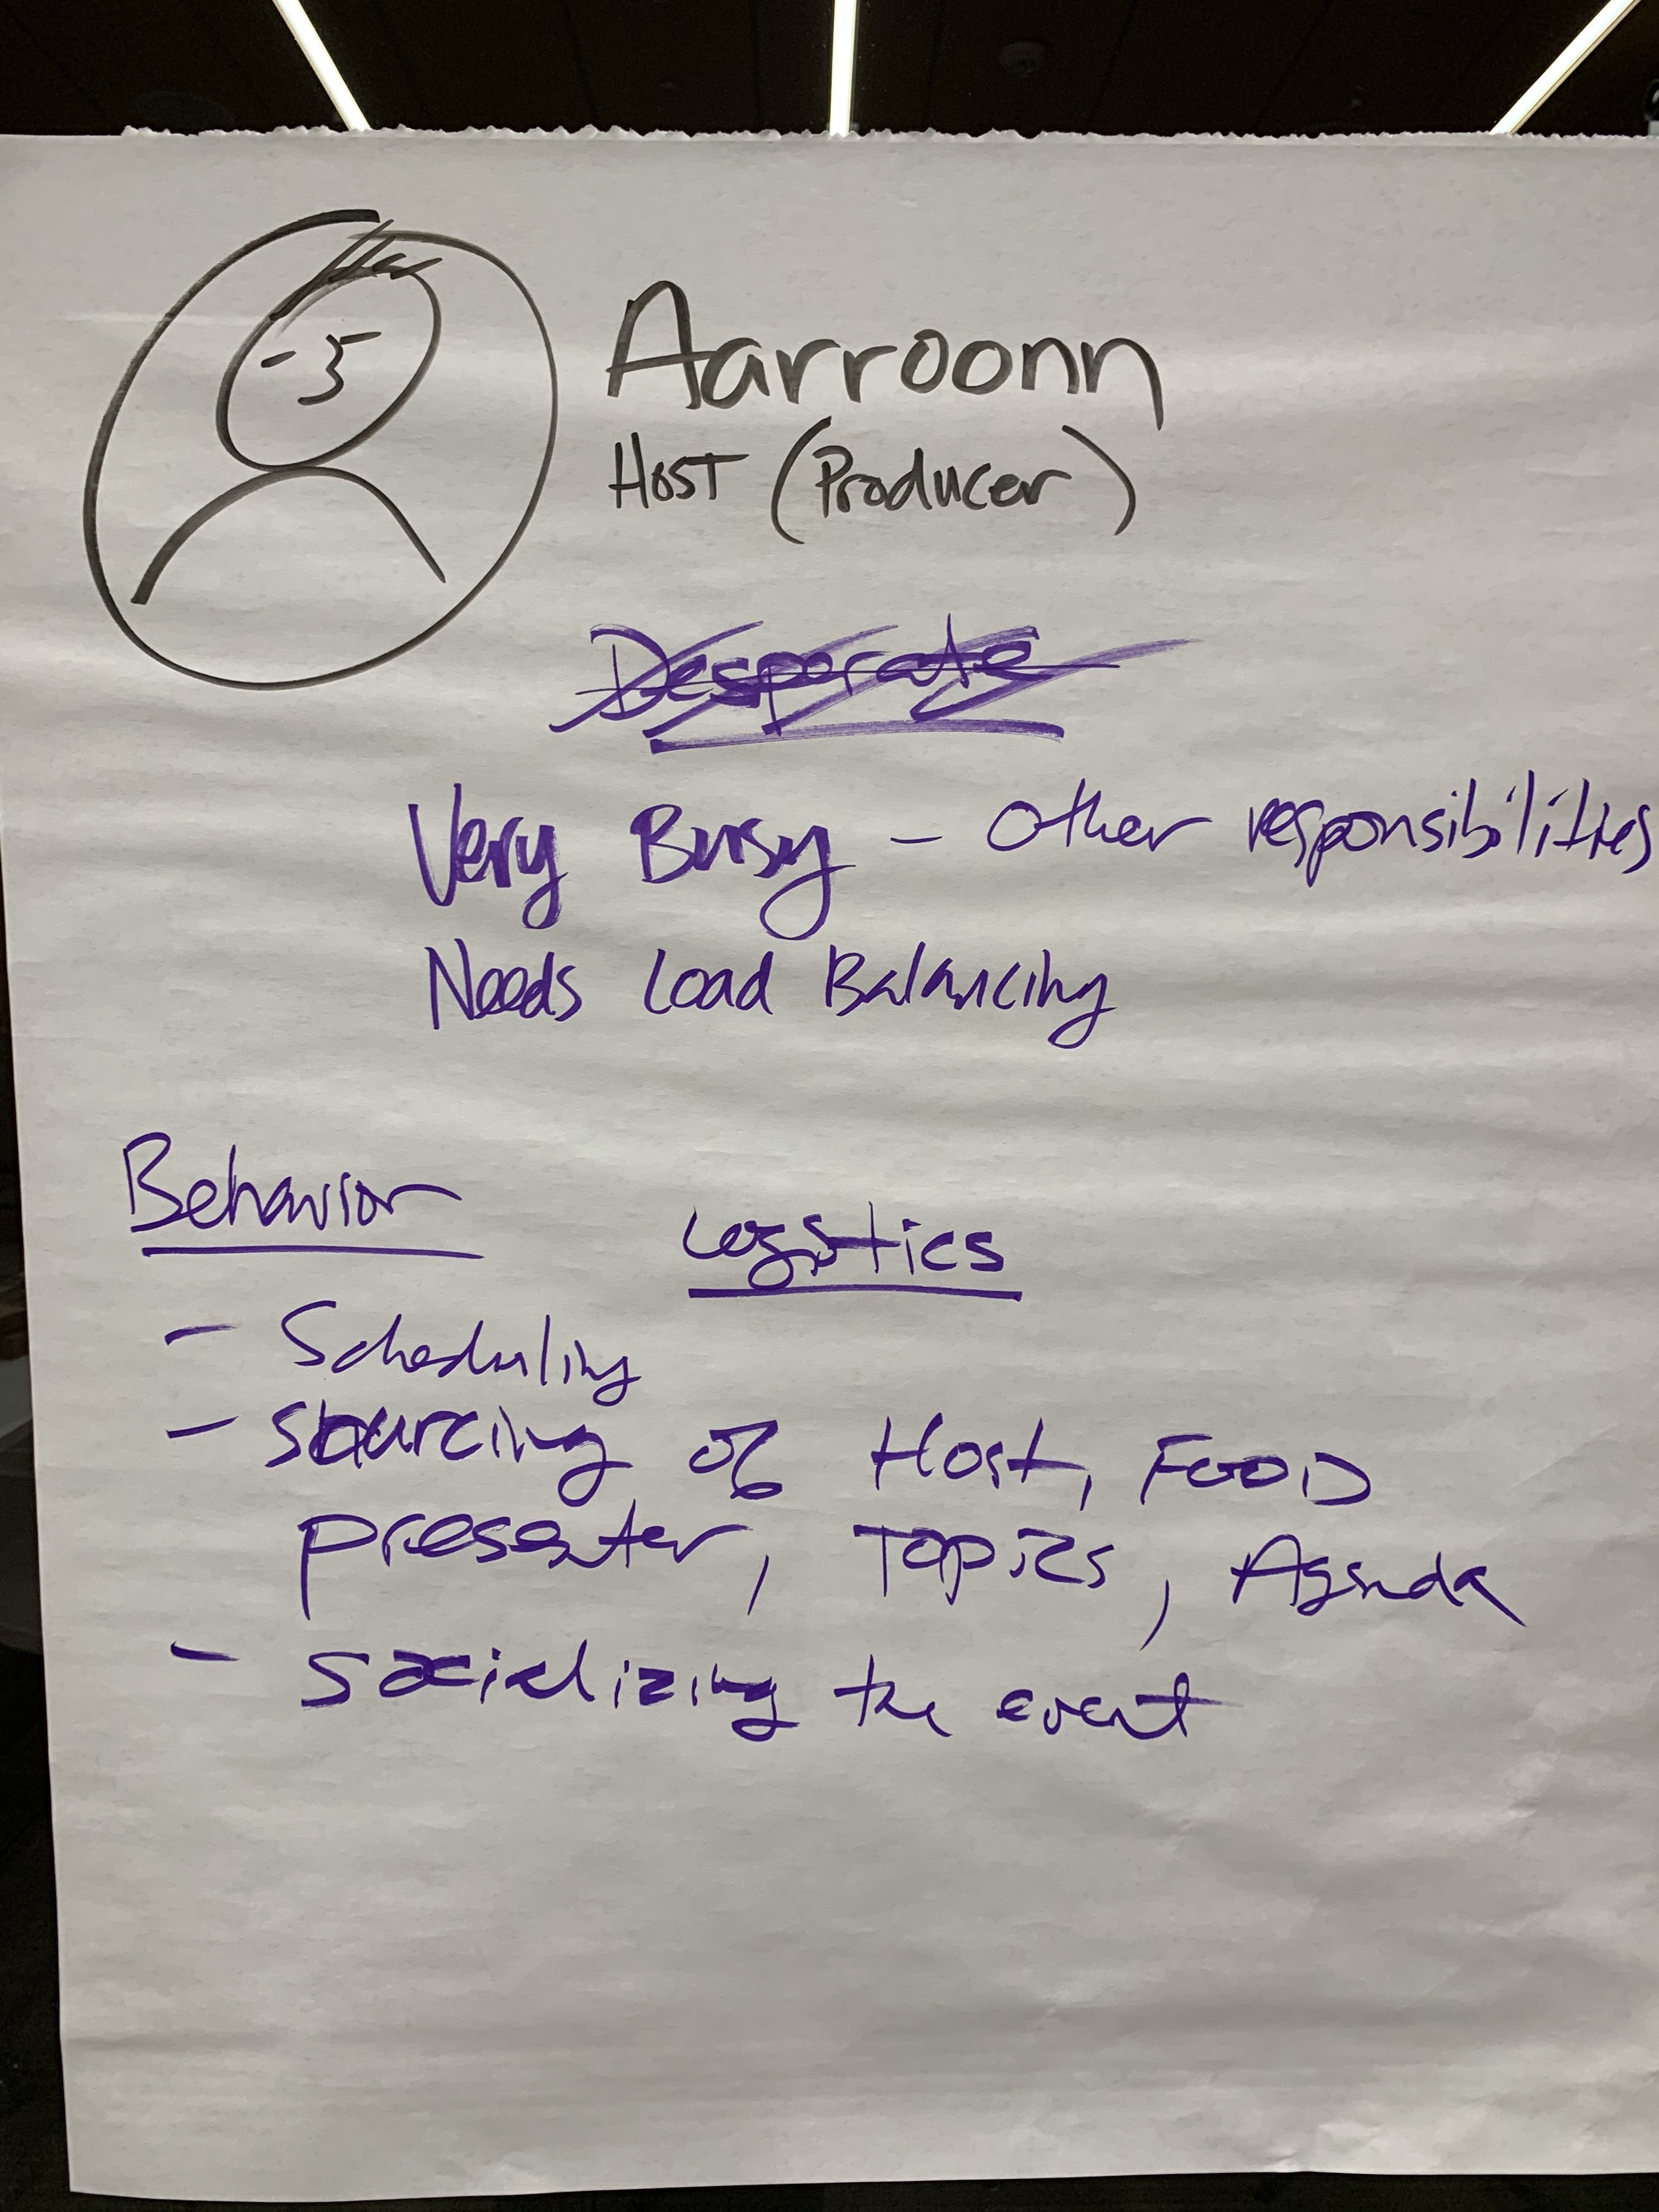 Aarroonn
Host (Producer)
Desperate
Very Busy - Other responsibilities
Needs Load Balancing
Behavior
Logistics
- Scheduling
- Sourcing of Host, FOOD
presenter, Topics, Agenda
- Socializing the event